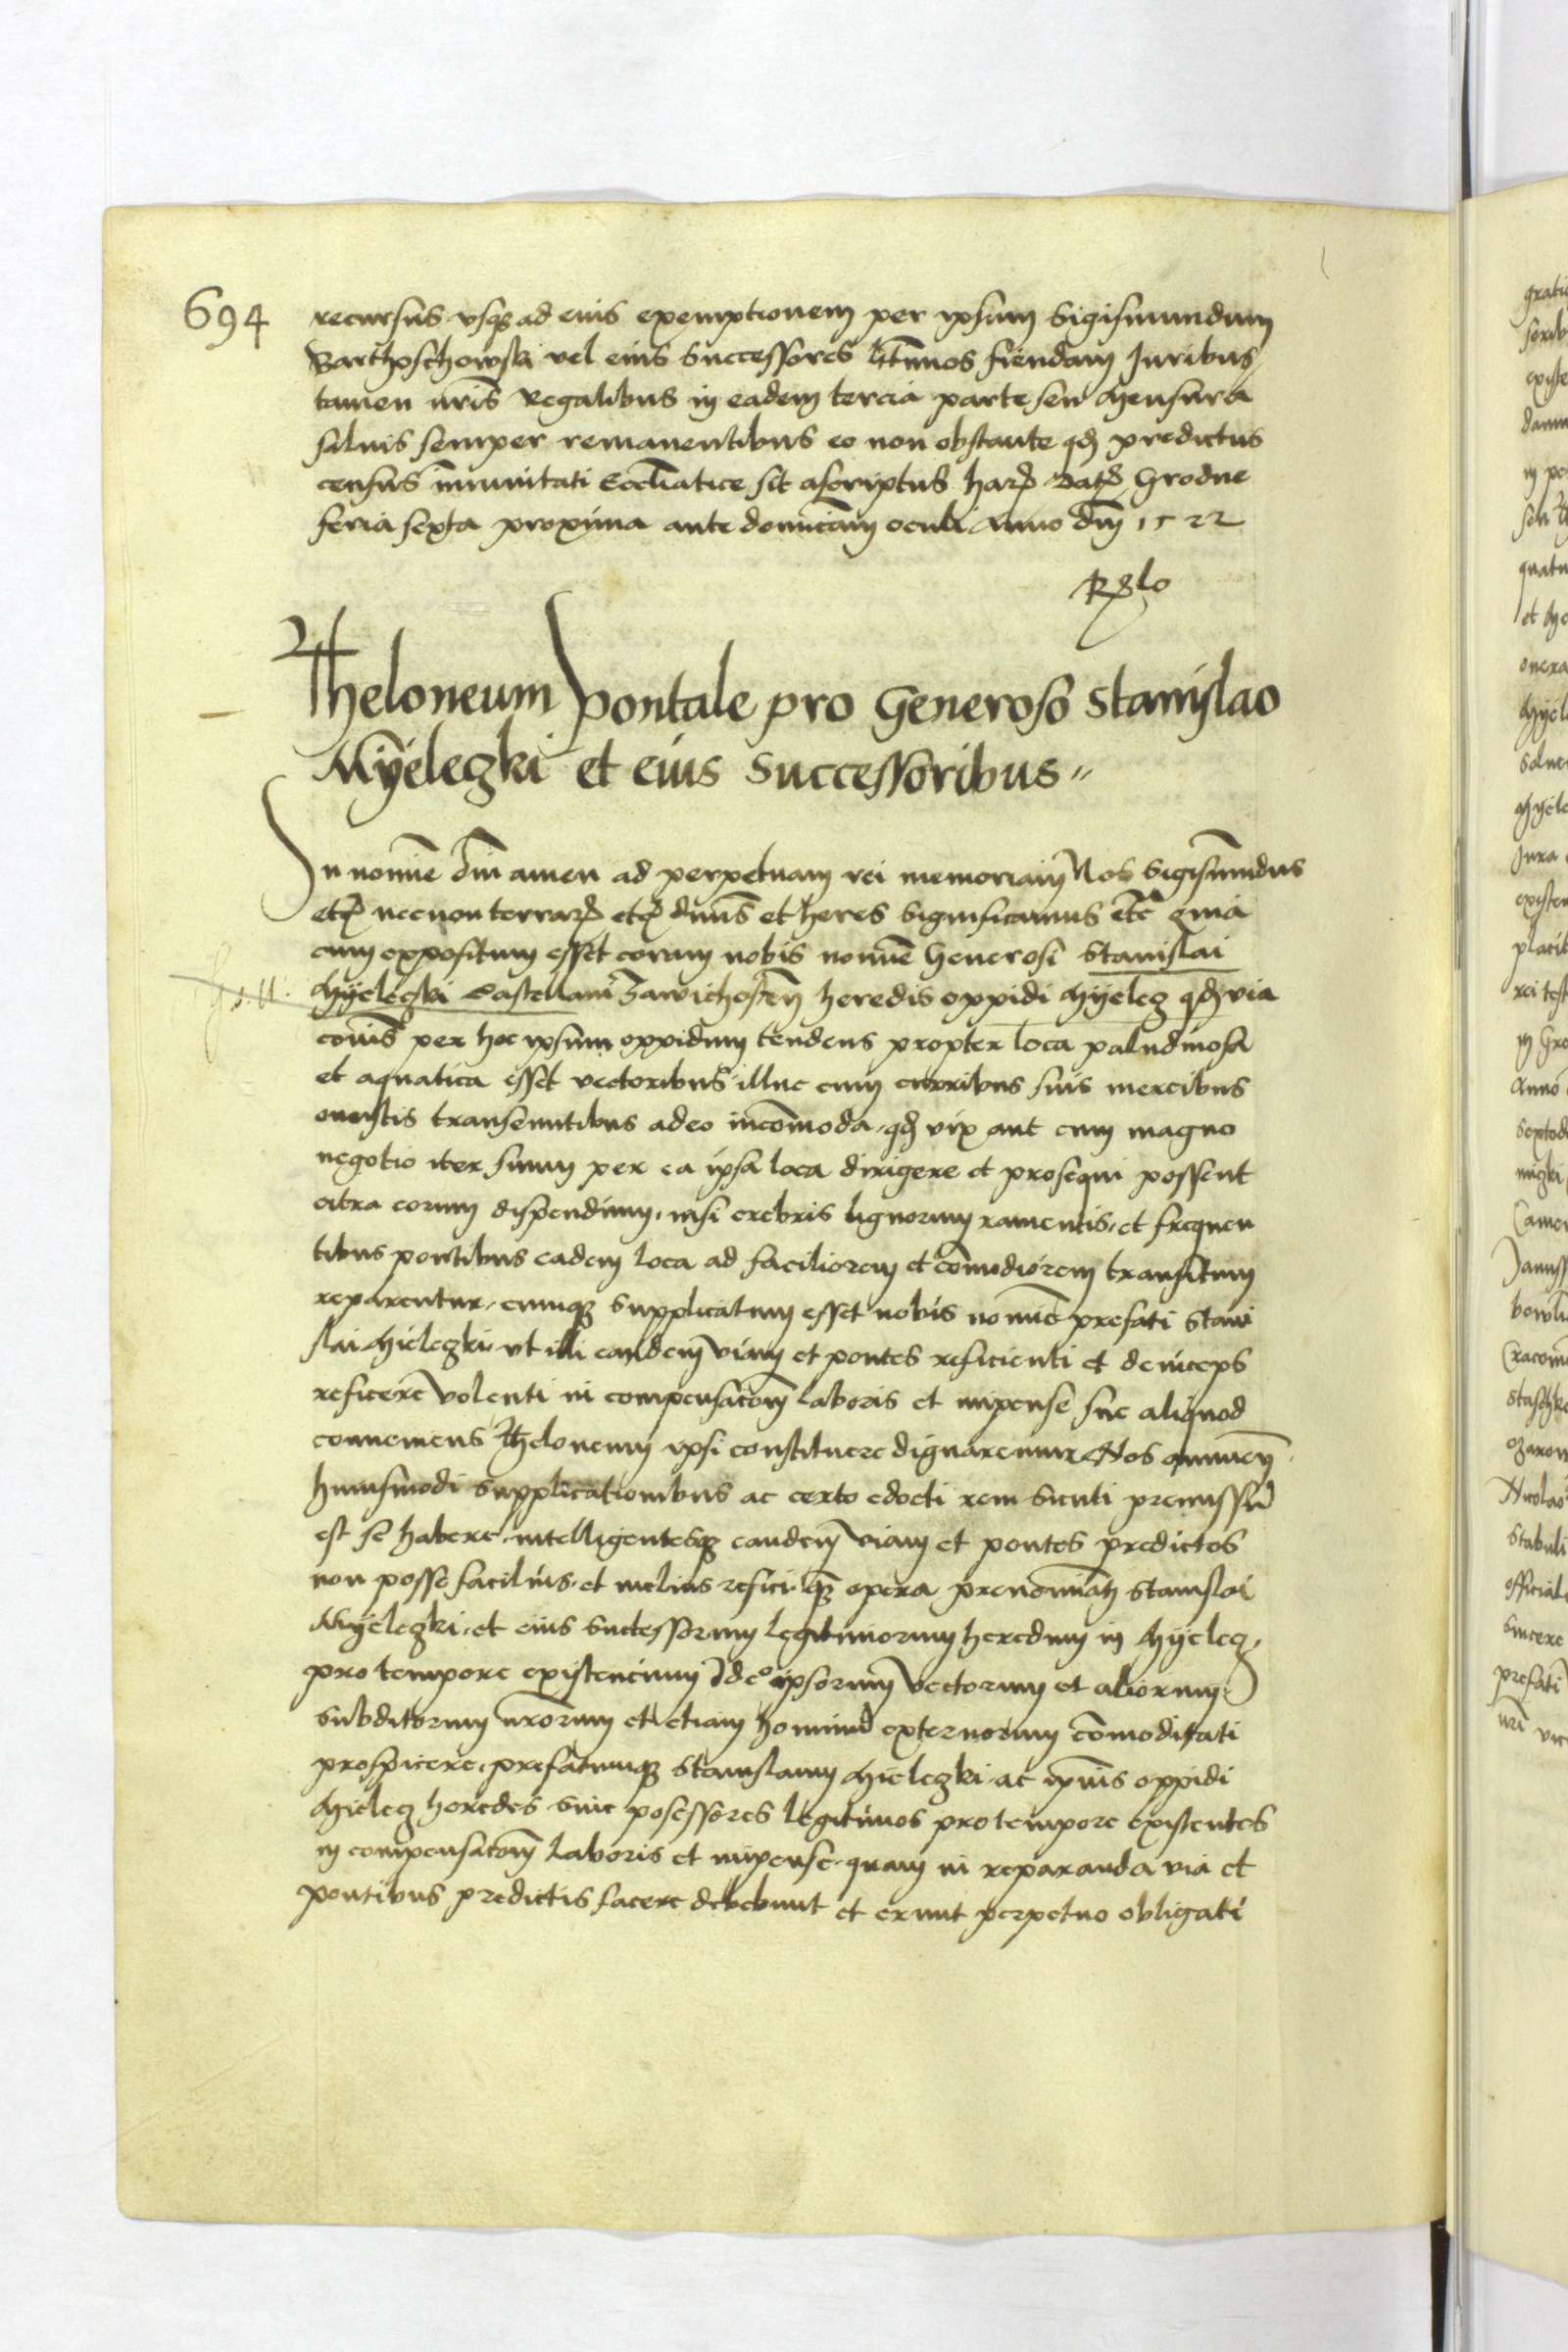 694
recursus vsq3 ad eius exemptionem per ipsum Sigismundum
Barthoschowski vel eius Successores ltimos fiendam Juribus
tamen nris Regalibus in eadem tercia parte seu Mensura
saluis semper remanentibus eo non obstante qd predictus
census immunitati Eccliatice sit ascriptus har Dat Grodne
feria sexta proxima ante domicam oculi Anno dni 1522
Rlo
Theloneum pontale pro Generoso Stanislao
Myelegzki et eius Successoribus
In nomie dni amen ad perpetuam rei memoriam Nos Sigismundus
etc necnon terrar etc dnus et heres Significamus etc quia
cum expositum esset coram nobis nomie Generosi Stanislai
Myelegzki Castellani Zawichosten heredis oppidi Myeleg qd via
cois per hoc ipsum oppidum tendens propter loca paludinosa
et aquatica esset vectoribus illuc cum curribus suis mercibus
onustis transeuntibus adeo incomoda qd vix aut cum magno
negotio iter suum per ea ipsa loca dirigere et prosequi possent
citra eorum dispendium nisi crebris lignorum ramentis et frequen
tibus pontibus eadem loca ad faciliorem et comodiorem transitum
repararentur cumq3 Supplicatum esset nobis nomie prefati Stani
slai Mielegzki vt illi eandem viam et pontes reficienti et deinceps
reficere volenti in compensacom laboris et impense sue aliquod
conueniens Theloneum ipsi constituere dignaremur Nos annuen
huiusmodi Supplicationibus ac certo edocti rem sicuti premissu
est se habere intelligentesq3 eandem viam et pontes predictos
non posse facilius et melius refici q3 opera prenominati Stanislai
Myelegzki et eius Successorum legitimorum heredum in Myeleg
pro tempore existencium Ideo ipsorum vectorum et aliorum
Subditorum nrorum et etiam hominu externorum comoditati
prospicere prefatumq3 Stanislaum Mielegzki ac ipius oppidi
Mieleg heredes siue posessores legitimos pro tempore existentes
in compensacom laboris et impense quam in reparanda via et
pontibus predictis facere debebunt et erunt perpetuo obligati